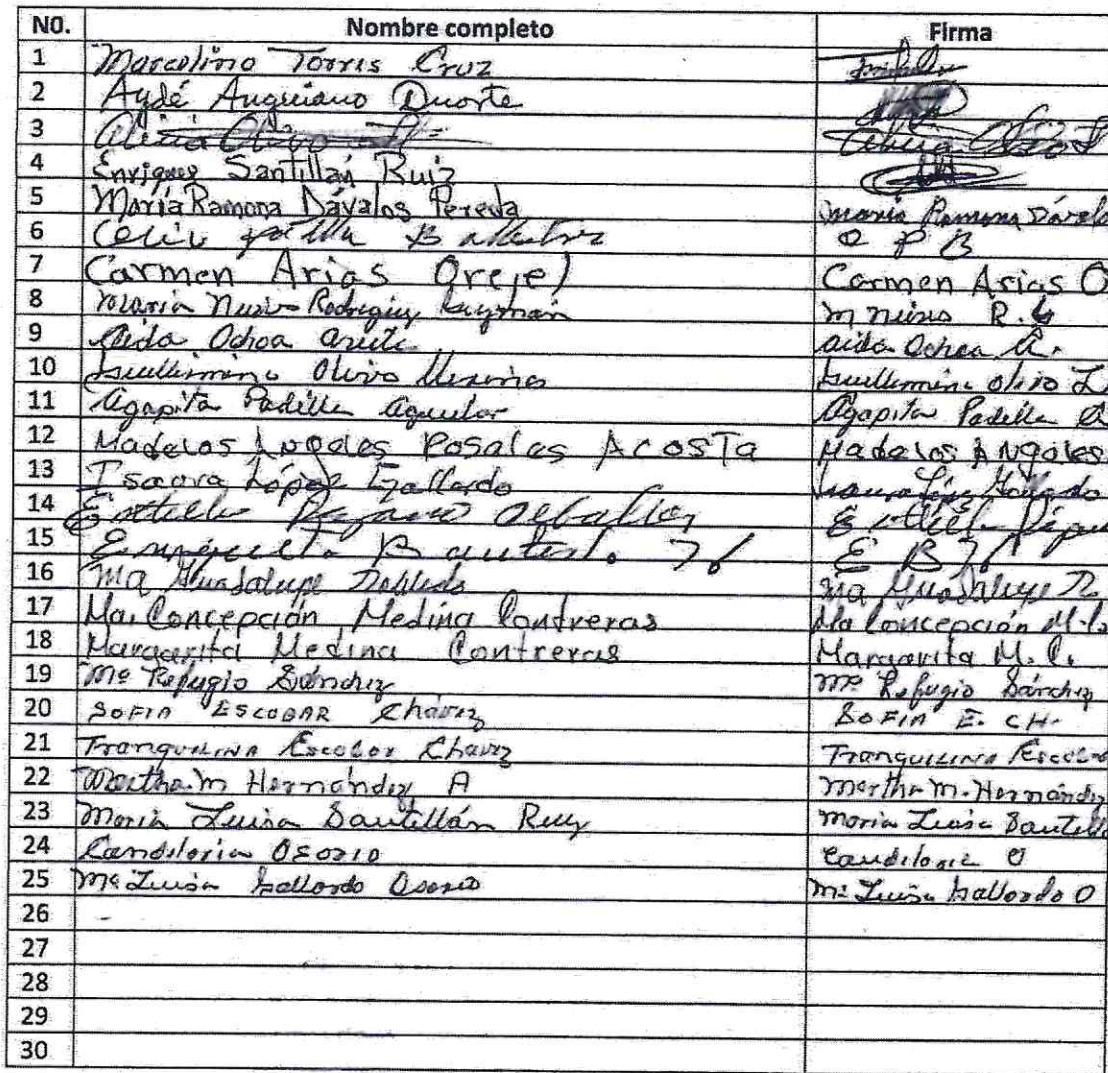 N0. Nombre completo Firma
1 Marcolino Torres Cruz
2 Aydé Anguiano Duarte
3 Alicia Olivo
4 Enrique Santillán Ruiz
5 María Ramona Dávalos Pereda María Ramona Dávalo
6 Padilla O P B
7 Carmen Arias Orejel Carmen Arias O
8 Maria Nieves Rodriguez Guzmán M nieves R. G
9 Aida Ochoa Aida Ochoa A.
10 Guillermina Olivo Guillermina Olivo L
11 Agapita Padilla Aguilar Agapita Padilla A
12 Ma de los Angeles Rosales Acosta Ma de los Angeles
13 Isaura López Gallardo Isaura López Gallardo
14 Ceballos
15 Enriqueta Bautista E B
16 Ma Guadalupe Robledo Ma Guadalupe R
17 Ma. Concepción Medina Contreras Ma Concepción M.C.
18 Margarita Medina Contreras Margarita M. C.
19 Mª Refugio Sánchez Mª Refugio Sánchez
20 SOFIA ESCOBAR Chávez SOFIA E. CH.
21 Tranquilina Escobar Chavez Tranquilina Escob
22 Martha M Hernández A Martha M. Hernández
23 Maria Luisa Santillán Ruiz Maria Luisa Santill
24 Candelaria Osorio Candelaria O
25 Mª Luisa Gallardo Osorio Mª Luisa Gallardo O
26 -
27
28
29
30